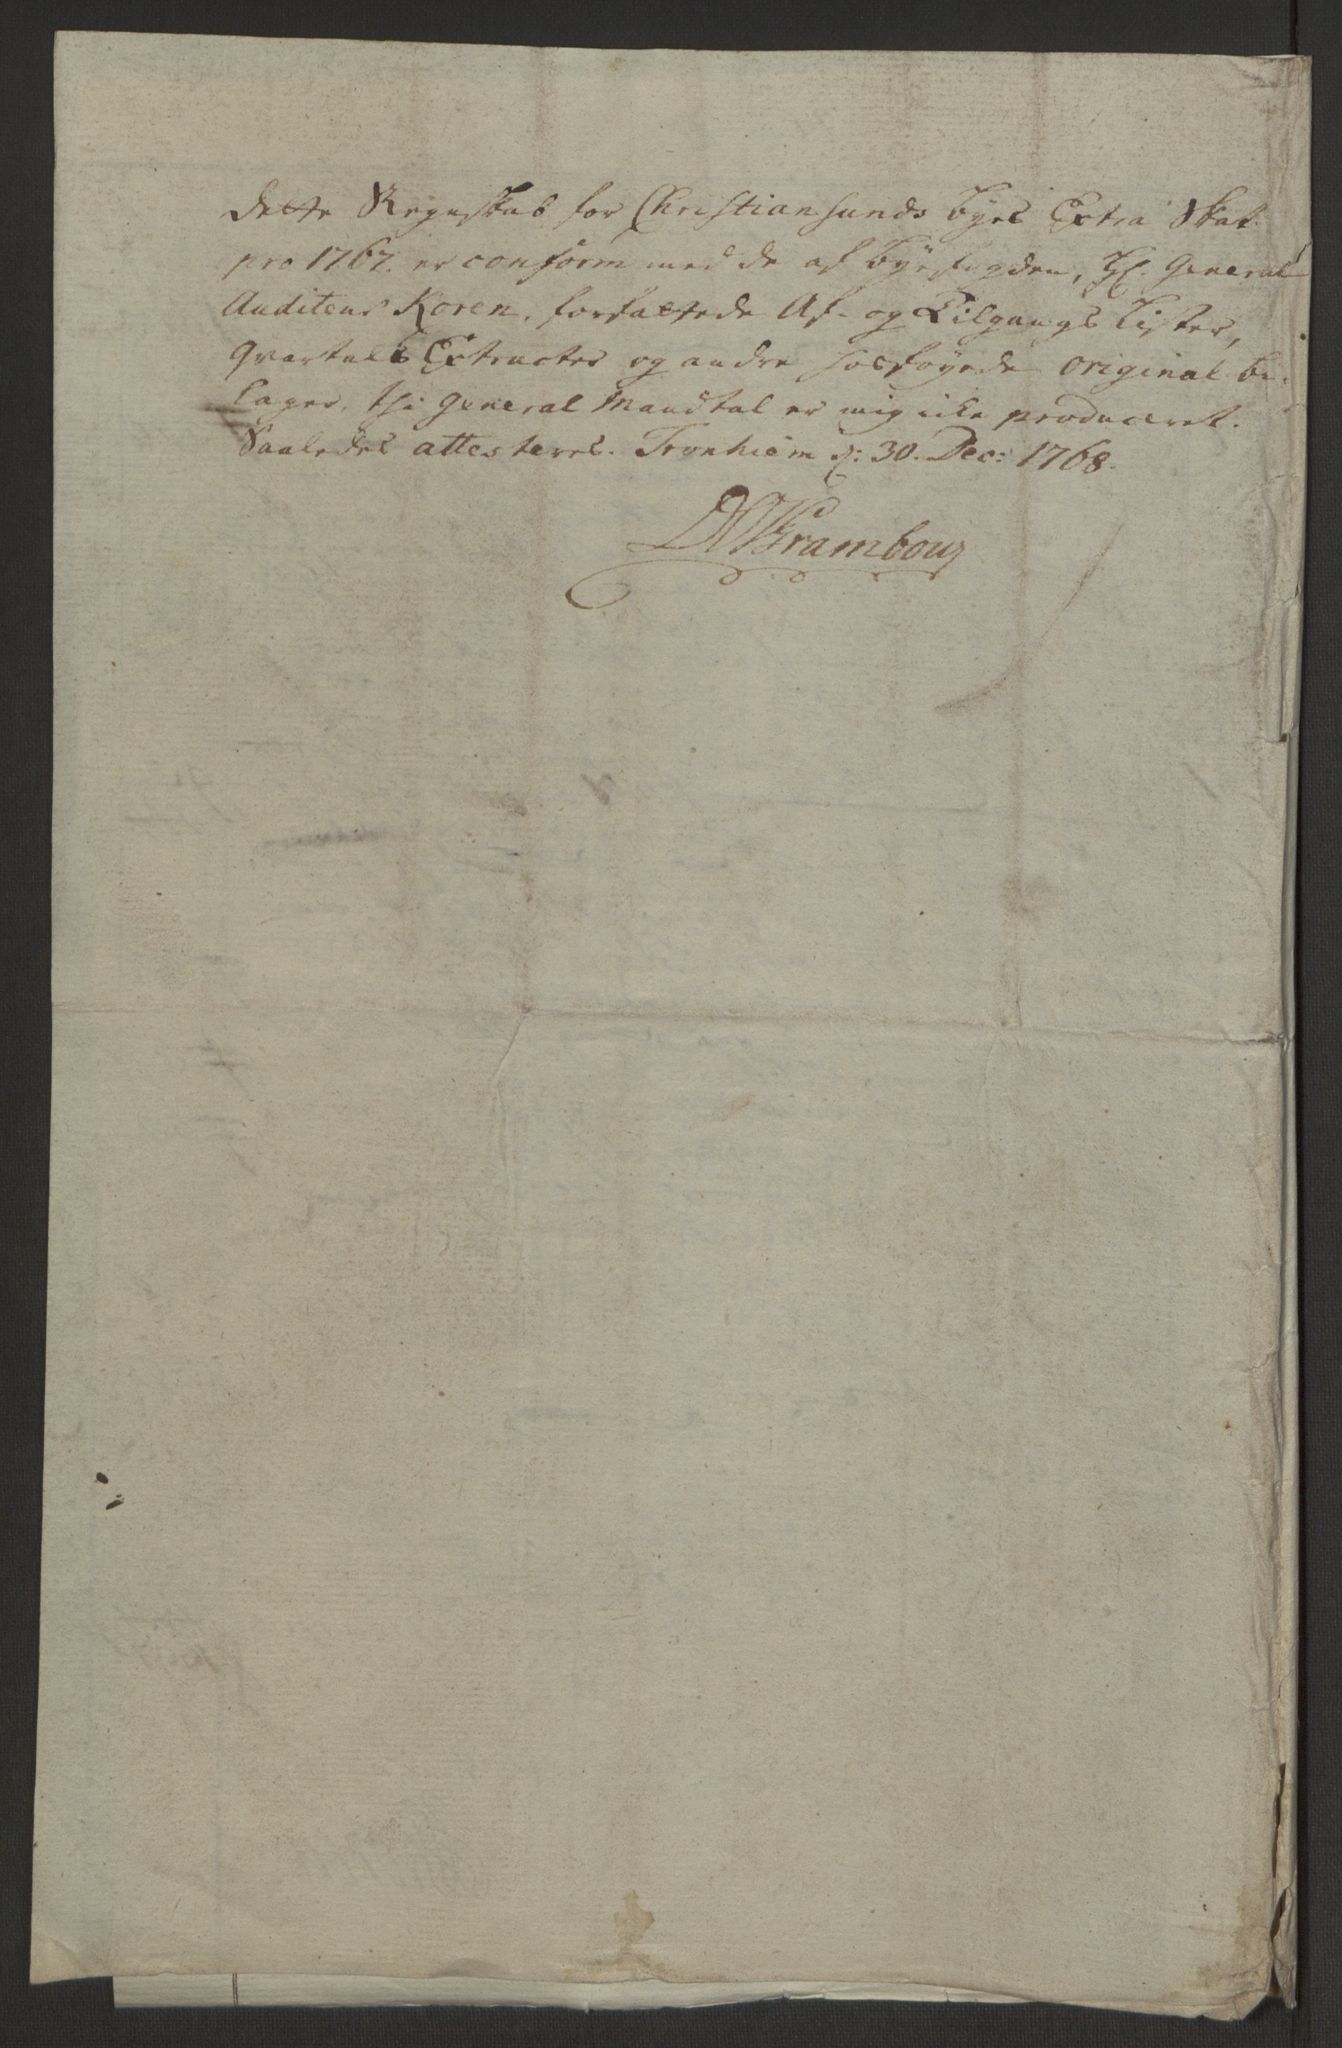 Dette Regnskab for Christiansunds Byes Extra Skat
pro 1767. er conform med de af Byefogden, Hr. General
Auditeur Koren, forfattede Af- og Tilgangs Lister,
Qvartals Extracter og andre hosføyede original be-
lager, thi General Mandtal er mig icke produceret.
Saaledes attesteres. Tronhiem d: 30. Dec: 1768.
Krambou